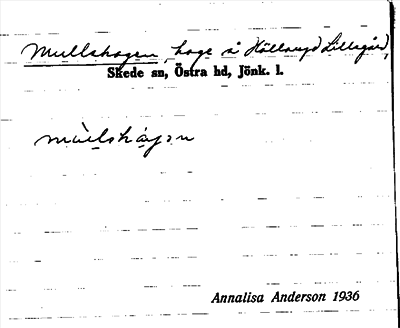 Mullshagen, hage i Hällaryd Lillegård,
Skede sn, Östra hd, Jönk. l.
Annalisa Anderson 1936